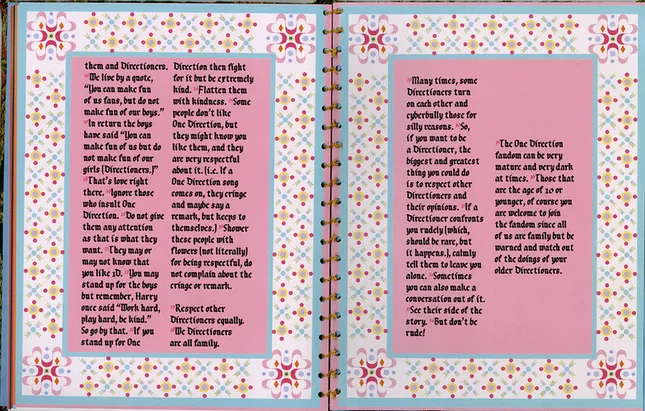 them and Directioners.
We live by a quote,
"You can make fun
of us fans, but do not
make fun of our boys."
In return the boys
have said "You can
make fun of us but do
not make fun of our
girls (Directioners.)"
That's love right
there. Ignore those
who insult One
Direction. Do not give
them any attention
as that is what they
want. They may or
may not know that
you like 1D. You may
stand up for the boys
but remember, Harry
once said "Work hard,
play hard, be kind."
So go by that. If you
stand up for One
Direction then fight
for it but be extremely
kind. Flatten them
with kindness. Some
people don't like
One Direction, but
they might know you
like them, and they
are very respectful
about it. (i.e. If a
One Direction song
comes on, they cringe
and maybe say a
remark, but keeps to
themselves.) Shower
these people with
flowers (not literally)
for being respectful, do
not complain about the
cringe or remark.
Respect other
Directioners equally.
We Directioners
are all family.
Many times, some
Directioners turn
on each other and
cyberbully those for
silly reasons. So,
if you want to be
a Directioner, the
biggest and greatest
thing you could do
is to respect other
Directioners and
their opinions. If a
Directioner confronts
you rudely (which,
should be rare, but
it happens.), calmly
tell them to leave you
alone. Sometimes
you can also make a
conversation out of it.
See their side of the
story. But don't be
rude!
The One Direction
fandom can be very
mature and very dark
at times. Those that
are the age of 10 or
younger, of course you
are welcome to join
the fandom since all
of us are family but be
warned and watch out
of the doings of your
older Directioners.